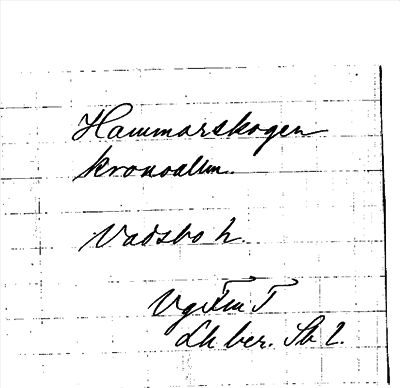 Hammarskogen
kronoallm.
Vadsbo h.
Lh ber. Sb 2.